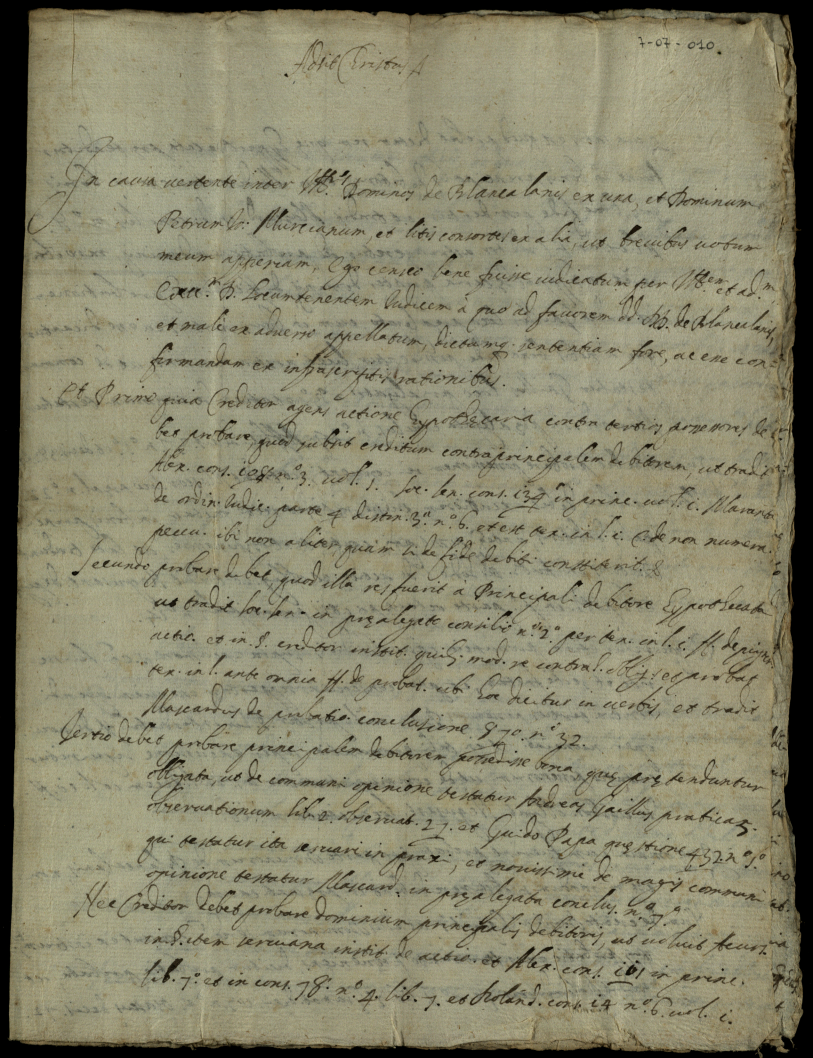 7-07-010.
Adsit Christus
In causa vertente inter Ill.es Dominos de Blancalanis ex una, et Dominum
Petrum Murcianum, et litis consortes ex alia, ut brevibus votum
meum apperiam, Ego censeo bene fuisse iudicatum per Ill.em et ad.m
D. Locumtenentem Iudicem à quo ad favorem dd. de Blancalanis,
et male ex adverso appellatum, dictamq. sententiam fore, ac esse con=
firmandam ex infrascriptis rationibus.
Et Primo quia Creditor agens actione Hypothecaria contra tertios possessores de
bet probare, quod subsit creditum contra principalem debitorem, ut tradit
Alex. cons. n.o 3. vol. Soc. Sen. cons. 134 in princ. vol. i. Marant.
de ordin. Iudic. parte 4 distin. 3.a n.o 6. et est tex. in l. i. C. de non numera.
pecu. ibi non aliter quàm si de fide debiti constiterit.
Secundo probare debet, quod illa res fuerit a Principali debitore Hypothecata
ut tradit Soc. Sen. in pręalegato consilio n.o 2.o per tex. in l. i. ff. de pignor.
actio. et in §. creditor instit. quib. mod. re contra. oblig. et probat
tex. in l. ante omnia ff. de probat. ubi hoc dicitur in verbis, et tradit
Mascardus de probatio. conclusione 870. n.o 32.
Tertio debet probare principalem debitorem possedisse bona quę prętenduntur
obligata, ut de communi opinione testatur Andreas Gaillus practicar.
observationum lib. 2. observat. 27. et Guido Papa quęstione 432 n.o
qui testatur ita servari in praxi, et novissime de magis communi
opinione testatur Mascard. in pręalegata conclus. n.o 7.o
Nec Creditor debet probare dominium principalis debitoris, ut voluit Accurs.
in §. item serviana instit. de actio. et Alex. cons. 161 in princ.
lib. 7.o et in cons. 78. n.o 4. lib. 7. et Roland. cons. 14 n.o 6. vol. i.